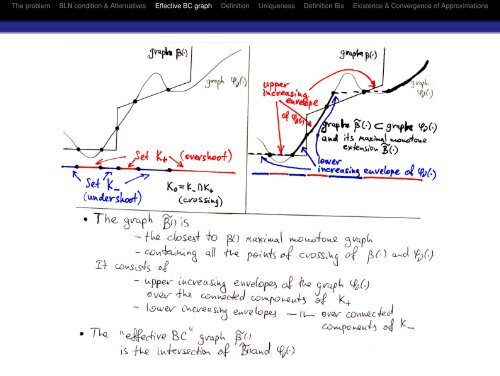 The problem BLN condition & Alternatives Effective BC graph Definition Uniqueness Definition Bis Existence & Convergence of Approximations
graph β(·)
graph φ₀(·)
Set K₊ (overshoot)
Set K₋
(undershoot)
K₀ = K₋∩K₊
(crossing)
graph β(·)
graph
φ₀(·)
upper
increasing
envelope
of φ₀(·)
graph β̃(·) ⊂ graph φ₀(·)
and its maximal monotone
extension B̃(·)
lower
increasing envelope of φ₀(·)
• The graph B̃(·) is
- the closest to β(·) maximal monotone graph
- containing all the points of crossing of β(·) and φ₀(·)
It consists of
- upper increasing envelopes of the graph φ₀(·)
over the connected components of K₊
- lower increasing envelopes —||— over connected
components of K₋
• The "effective BC" graph β̃(·)
is the intersection of B̃(·) and φ₀(·)